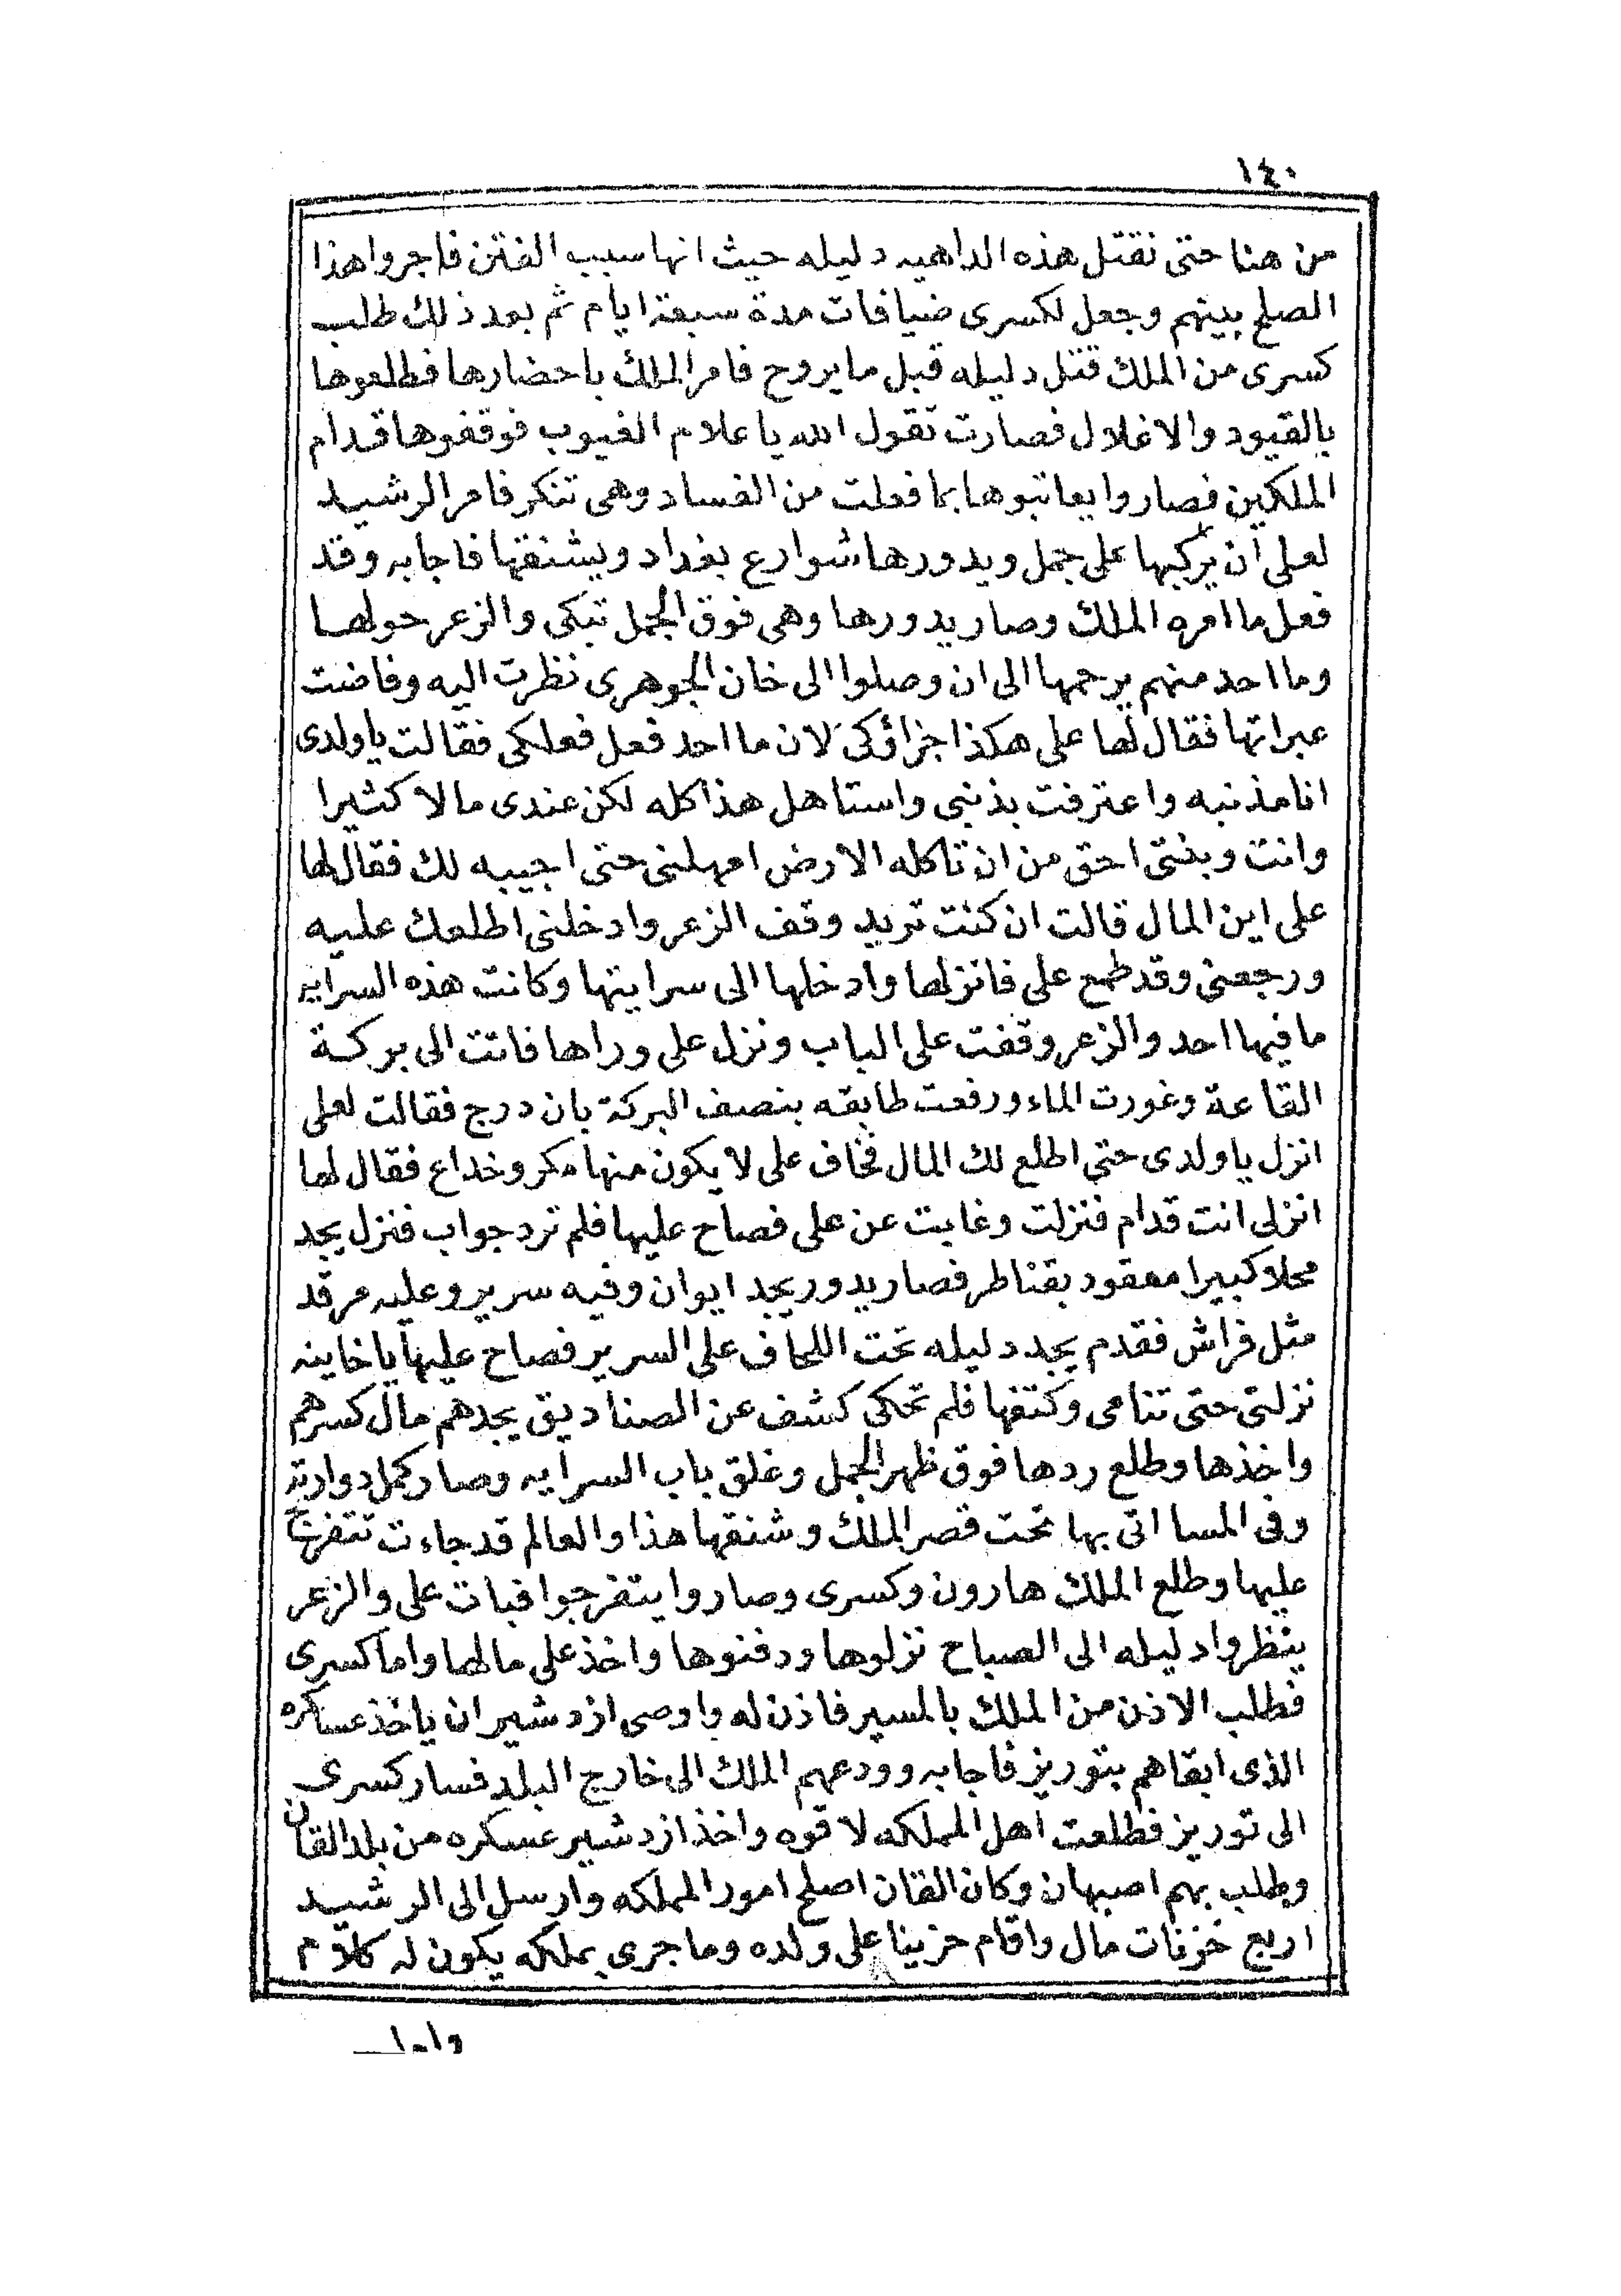 ١٤٠
من هنا حتى نقتل هذه الداهيه دليله حيث انها سبب الفتن فاجروا هذا
الصلح بينهم وجعل لكسرى ضيافات مدة سبعة ايام ثم بعد ذلك طلب
كسرى من الملك قتل دليله قبل ما يروح فامر الملك باحضارها فطلعوها
بالقيود والاغلال فصارت تقول الله يا علام الغيوب فوقفوها قدام
الملكين فصاروا يعاتبوها بما فعلت من الفساد وهى تنكر فامر الرشيد
لعلى ان يركبها على جمل ويدورها شوارع بغداد ويشنقها فاجابه وقد
فعل ما امره الملك وصار يدورها وهى فوق الجمل تبكى والزعر حولها
وما احد منهم يرحمها الى ان وصلوا الى خان الجوهرى نظرت اليه وفاضت
عبراتها فقال لها على هكذا جزاؤكى لان ما احد فعل فعلكى فقالت ياولدى
انا مذنبه واعترفت بذنبى واستاهل هذا كله لكن عندى مالا كثيرا
وانت وبنتى احق من ان تاكله الارض امهلنى حتى اجيبه لك فقال لها
على اين المال قالت ان كنت تريد وقف الزعر وادخلنى اطلعك عليه
ورجعنى وقد طمع على فانزلها وادخلها الى سرايتها وكانت هذه السرايه
ما فيها احد والزعر وقفت على الباب ونزل على وراها فاتت الى بركة
القاعة وغورت الماء ورفعت طابقه بنصف البركة بان درج فقالت لعلى
انزل ياولدى حتى اطلع لك المال فخاف على لا يكون منها مكر وخداع فقال لها
انزلى انت قدام فنزلت وغابت عن على فصاح عليها فلم ترد جواب فنزل يجد
محلا كبيرا معقود بقناطر فصار يدور يجد ايوان وفيه سرير وعليه مرقد
مثل فراش فقدم يجد دليله تحت اللحاف على السرير فصاح عليها ياخاينه
نزلتى حتى تنامى وكتفها فلم تحكى كشف عن الصناديق يجدهم مال كسرهم
واخذها وطلع ردها فوق ظهر الجمل وغلق باب السرايه وصار كمل دوارته
وفى المسا اتى بها تحت قصر الملك وشنقها هذا والعالم قد جاءت تتفرج
عليها وطلع الملك هارون وكسرى وصاروا يتفرجوا فبات على والزعر
ينظروا دليله الى الصباح نزلوها ودفنوها واخذ على مالها واما كسرى
فطلب الاذن من الملك بالمسير فاذن له واوصى ازدشير ان ياخذ عساكره
الذى ابقاهم بتوريز فاجابه وودعهم الملك الى خارج البلد فسار كسرى
الى توريز فطلعت اهل المملكه لاقوه واخذ ازدشير عسكره من بلد القان
وطلب بهم اصبهان وكان القان اصلح امور المملكه وارسل الى الرشيد
اربع خزنات مال واقام حزينا على ولده وما جرى بملكه يكون له كلام